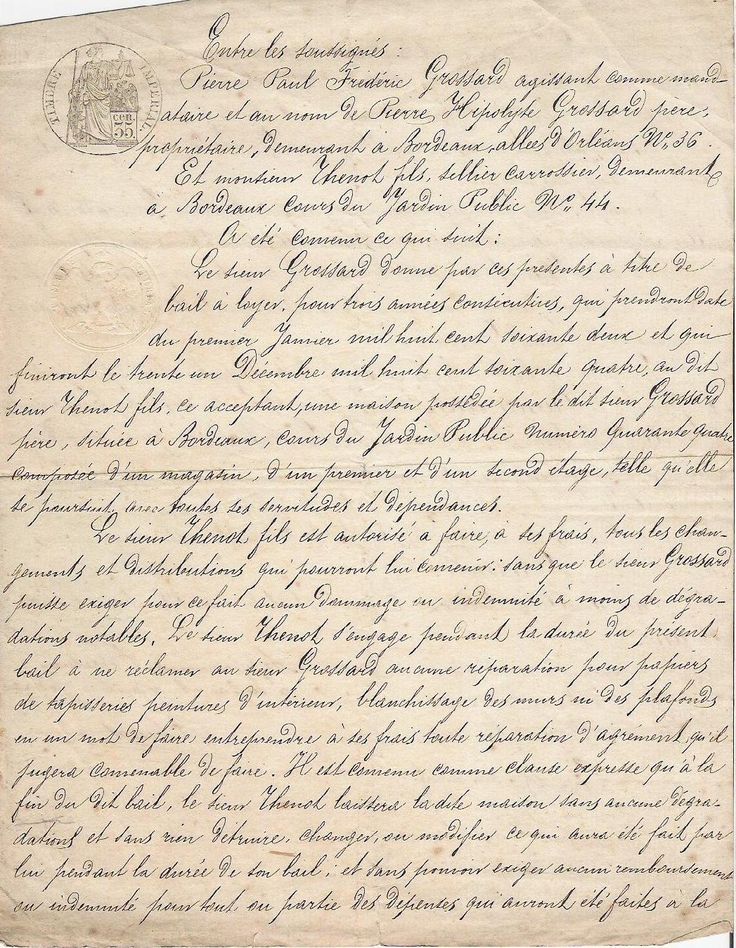 TIMBRE IMPERIAL
CEN.
55
Entre les soussignés :
Pierre Paul Frédéric Grossard agissant comme mand-
ataire et au nom de Pierre Hipolyte Grossard père,
propriétaire, demeurant à Bordeaux, allées d'Orléans No 36.
Et monsieur Thenot fils, sellier carrossier, demeurant
à Bordeaux cours du Jardin Public No 44.
A été convenu ce qui suit :
Le sieur Grossard donne par ces presentes à titre de
bail à loyer, pour trois années consécutives, qui prendront date
du premier Janvier mil huit cent soixante deux et qui
finiront le trente un Décembre mil huit cent soixante quatre, au dit
sieur Thenot fils, ce acceptant, une maison possédée par le dit sieur Grossard
père, située à Bordeaux, cours du Jardin Public numéro Quarante quatre
composée d'un magasin, d'un premier et d'un second étage, telle qu'elle
se poursuit, avec toutes ses servitudes et dépendances.
Le sieur Thenot fils est autorisé a faire, à ses frais, tous les chan-
gements et distributions qui pourront lui convenir : sans que le sieur Grossard
puisse exiger pour ce fait aucun dommage ou indemnité à moins de dégra-
dations notables. Le sieur Thenot s'engage pendant la durée du present
bail à ne réclamer au sieur Grossard aucune reparation pour papiers
de tapisseries peintures d'intérieur, blanchissage des murs ni des plafonds
en un mot de faire entreprendre à ses frais toute réparation d'agrément qu'il
jugera convenable de faire. Il est convenu comme clause expresse qu'à la
fin du dit bail, le sieur Thenot laissera la dite maison sans aucune dégra-
dations et sans rien détruire, changer, ou modifier ce qui aura été fait par
lui pendant la durée de son bail ; et sans pouvoir exiger aucun remboursement
ou indemnité pour tout ou partie des dépenses qui auront été faites à la